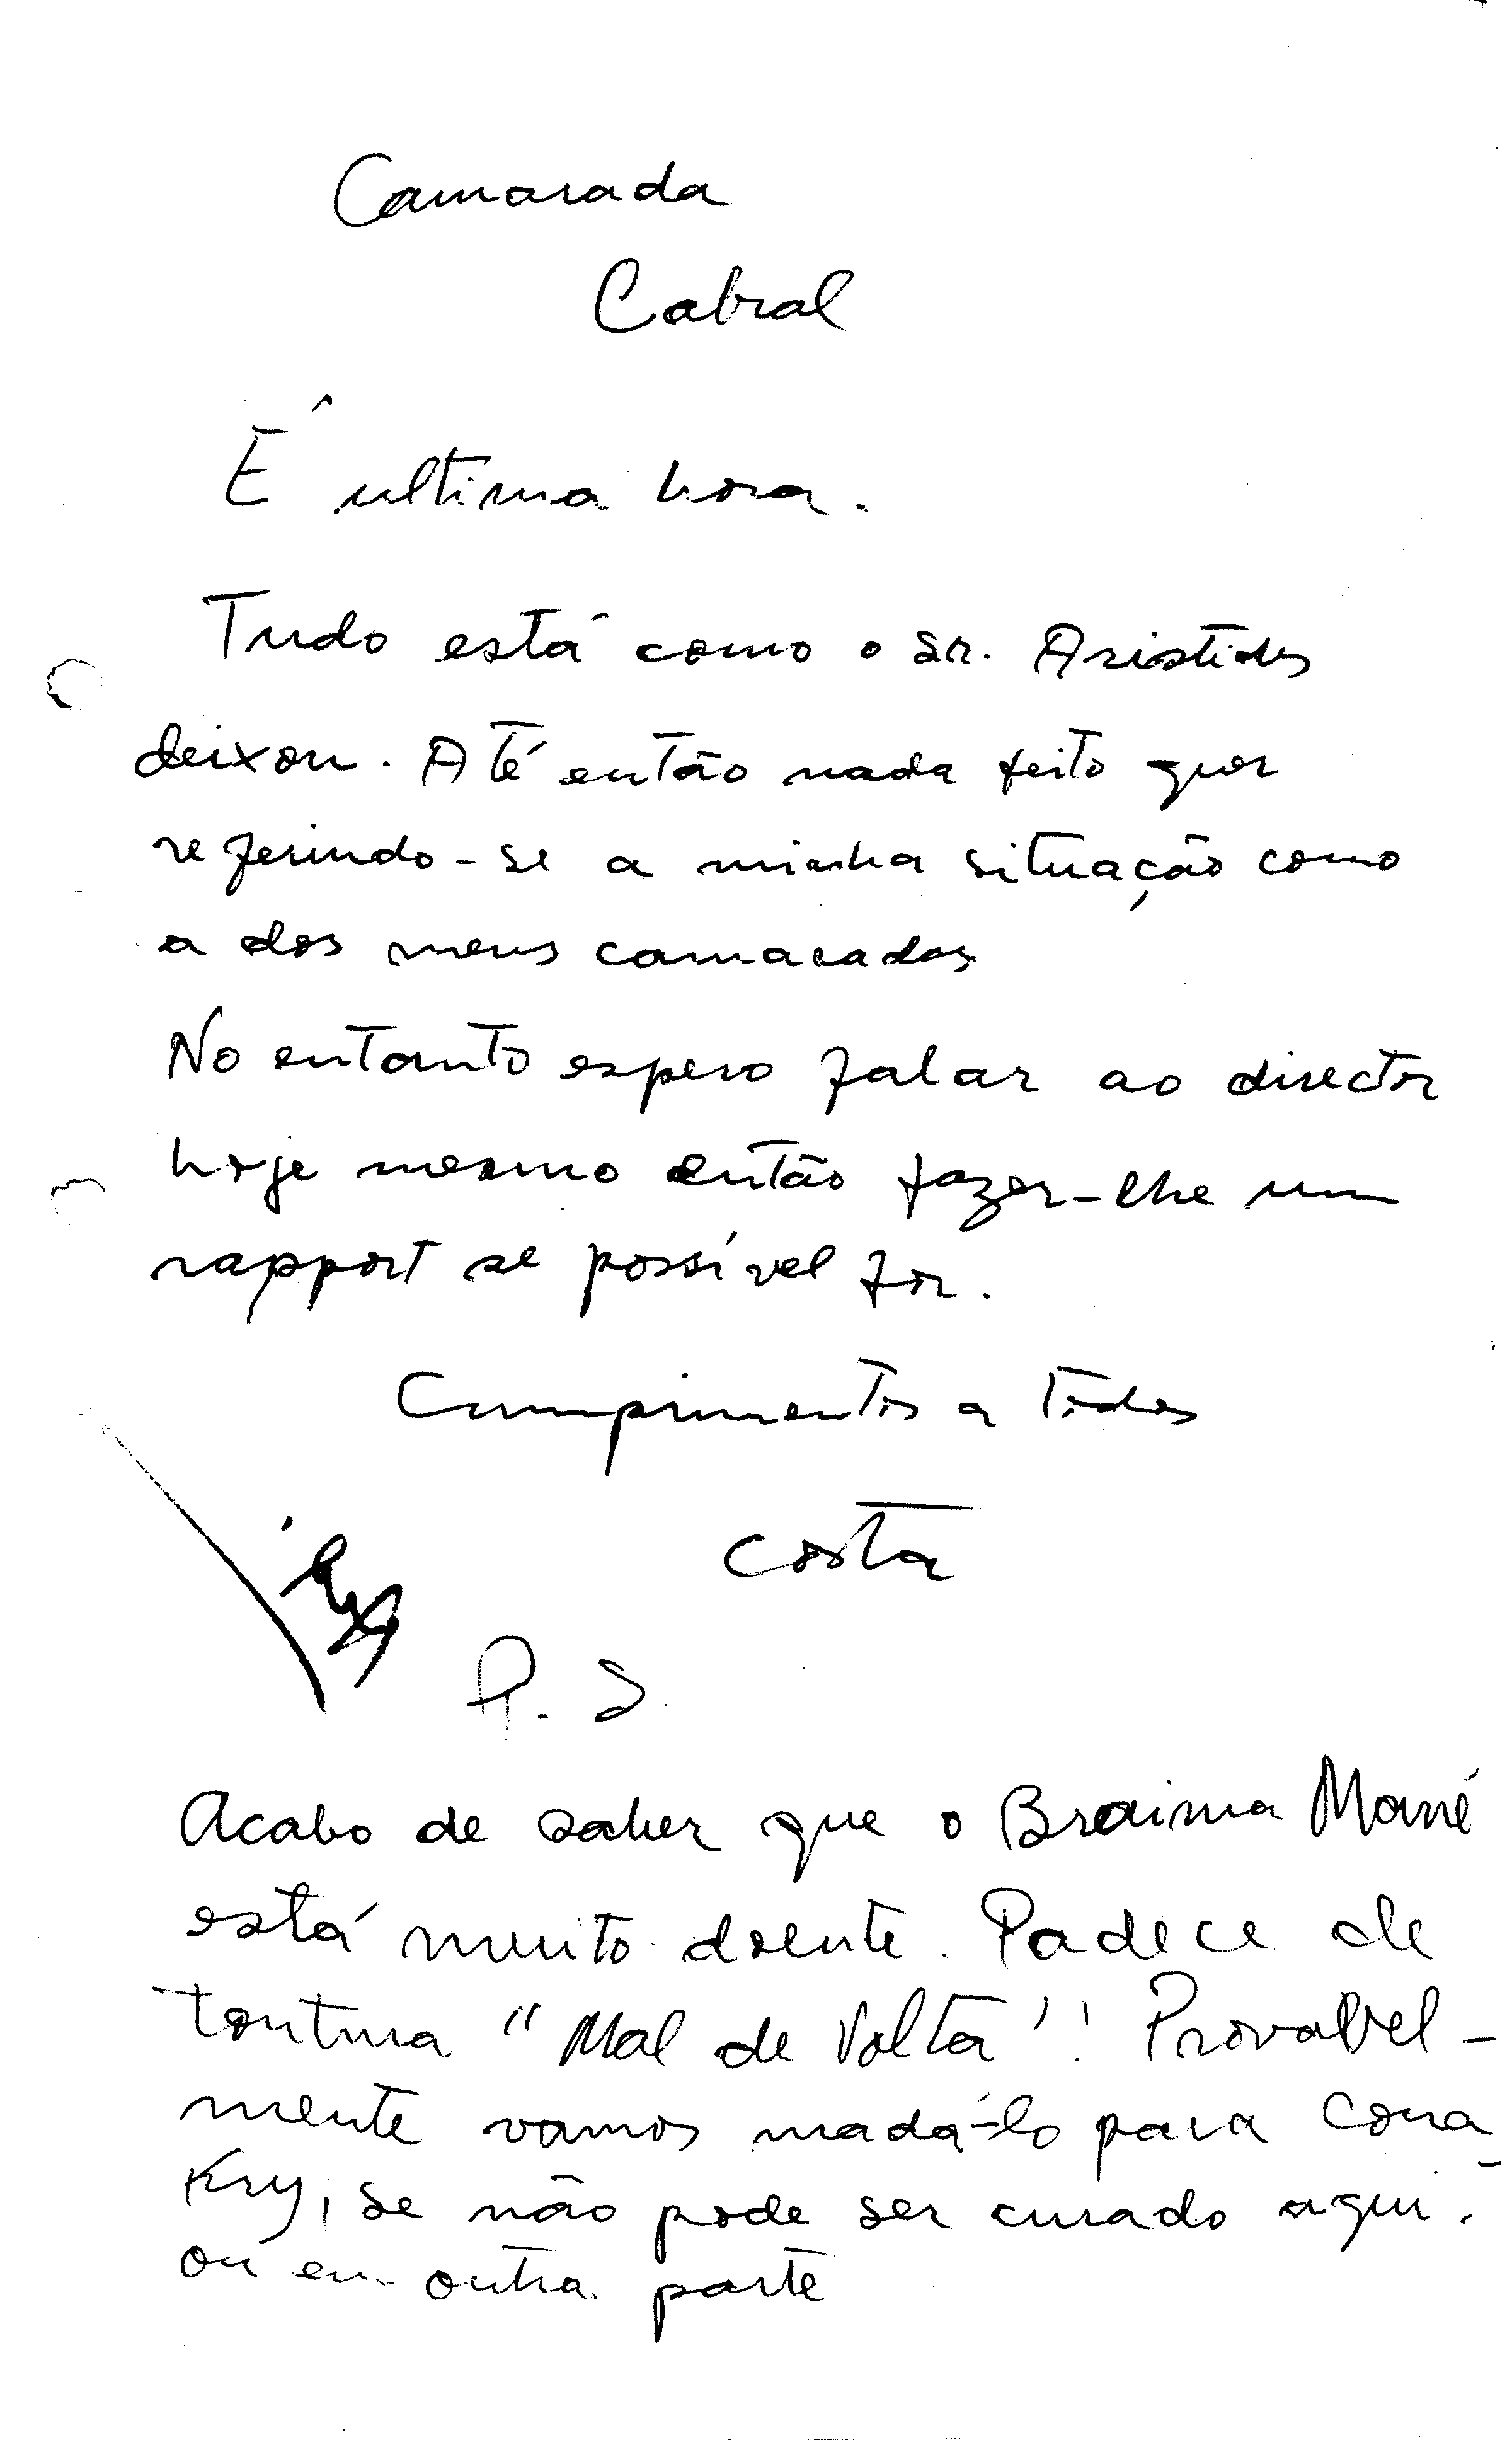 Camarada
Cabral
É ultima hora.
Tudo está como o Sr. Aristides
deixou. Até então nada feito quer
referindo-se a minha situação como
a dos meus camaradas
No entanto espero falar ao director
hoje mesmo então fazer-lhe um
rapport se possível for.
Cumprimentos a todos
Costa
P. S.
Acabo de saber que o Braima Mané
está muito doente. Padece de
tontura "Mal de Volta"! Provavel-
mente vamos madá-lo para Cona-
Kry, se não pode ser curado aqui.
ou em outra parte